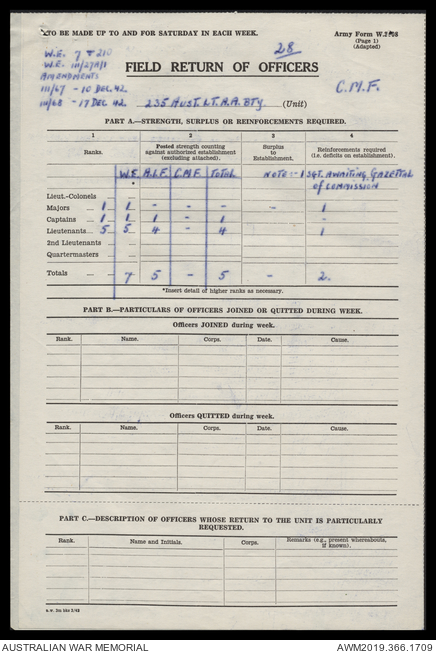 TO BE MADE UP TO AND FOR SATURDAY IN EACH WEEK.
Army Form W.3008
(Page 1)
(Adapted)
W.E. 7 & 210
W.E. III/27A/1
AMENDMENTS
III/67 - 10 DEC. 42.
III/68 - 17 DEC 42.
28
FIELD RETURN OF OFFICERS
C.M.F.
235 AUST. LT. A.A. BTY. (Unit)
PART A.—STRENGTH, SURPLUS OR REINFORCEMENTS REQUIRED.
1 2 3 4
Ranks. Posted strength counting against authorized establishment (excluding attached). Surplus to Establishment. Reinforcements required (i.e. deficits on establishment).
W.E. A.I.F. C.M.F. TOTAL NOTE:- 1 SGT. AWAITING GAZETTAL
OF COMMISSION
Lieut.-Colonels
Majors 1 1 - - - - 1
Captains 1 1 1 - 1
Lieutenants 5 5 4 - 4 1
2nd Lieutenants
Quartermasters
Totals 7 5 - 5 - 2.
*Insert detail of higher ranks as necessary.
PART B.—PARTICULARS OF OFFICERS JOINED OR QUITTED DURING WEEK.
Officers JOINED during week.
Rank. Name. Corps. Date. Cause.
Officers QUITTED during week.
Rank. Name. Corps. Date. Cause.
PART C.—DESCRIPTION OF OFFICERS WHOSE RETURN TO THE UNIT IS PARTICULARLY
REQUESTED.
Rank. Name and Initials. Corps. Remarks (e.g., present whereabouts, if known).
AUSTRALIAN WAR MEMORIAL
AWM2019.366.1709